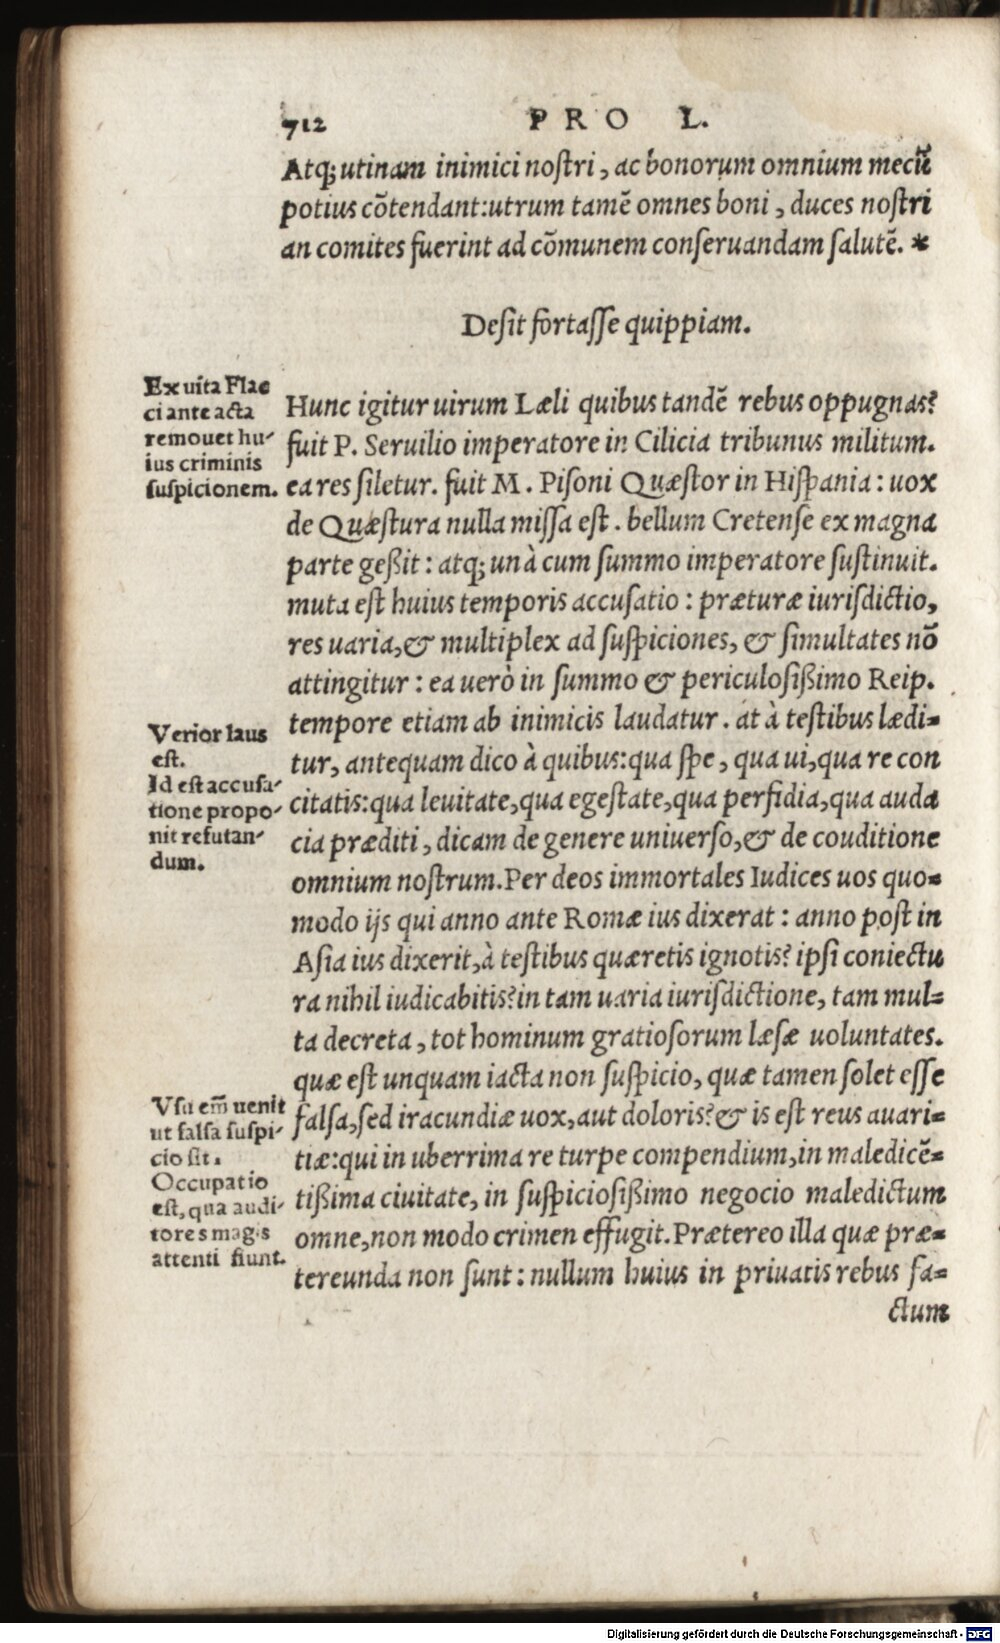 712 PRO L.
Atq; utinam inimici nostri, ac bonorum omnium mecũ
potius cõtendant: utrum tamẽ omnes boni, duces nostri
an comites fuerint ad cõmunem conseruandam salutẽ. *
Desit fortasse quippiam.
Ex uita Flac
ci ante acta
remouet hu-
ius criminis
suspicionem.
Hunc igitur uirum Læli quibus tandẽ rebus oppugnas?
fuit P. Seruilio imperatore in Cilicia tribunus militum.
ea res siletur. fuit M. Pisoni Quæstor in Hispania: uox
de Quæstura nulla missa est. bellum Cretense ex magna
parte geßit: atq; unà cum summo imperatore sustinuit.
muta est huius temporis accusatio: præturæ iurisdictio,
res uaria, & multiplex ad suspiciones, & simultates nõ
attingitur: ea uerò in summo & periculosißimo Reip.
tempore etiam ab inimicis laudatur. at à testibus lædi-
tur, antequam dico à quibus: qua spe, qua ui, qua re con
citatis: qua leuitate, qua egestate, qua perfidia, qua auda
cia præditi, dicam de genere uniuerso, & de couditione
omnium nostrum. Per deos immortales Iudices uos quo-
modo ijs qui anno ante Romæ ius dixerat: anno post in
Asia ius dixerit, à testibus quæretis ignotis? ipsi coniectu
ra nihil iudicabitis? in tam uaria iurisdictione, tam mul-
ta decreta, tot hominum gratiosorum læsæ uoluntates.
quæ est unquam iacta non suspicio, quæ tamen solet esse
falsa, sed iracundiæ uox, aut doloris? & is est reus auari-
tiæ: qui in uberrima re turpe compendium, in maledicẽ-
tißima ciuitate, in suspiciosißimo negocio maledictum
omne, non modo crimen effugit. Prætereo illa quæ præ-
tereunda non sunt: nullum huius in priuatis rebus fa-
ctum
Verior laus
est.
Id est accusa-
tione propo-
nit refutan-
dum.
Vsu em̃ uenit
ut falsa suspi-
cio sit.
Occupatio
est, qua audi-
tores magis
attenti fiunt.
Digitalisierung gefördert durch die Deutsche Forschungsgemeinschaft - DFG